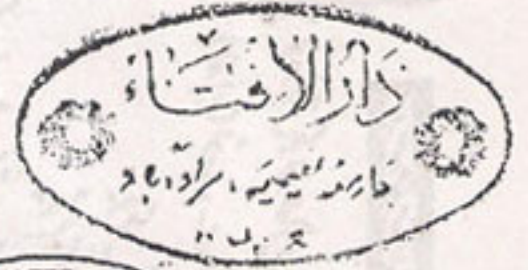 دَارُ الْاِفْتَاء
جامعہ نعیمیہ، مرادآباد